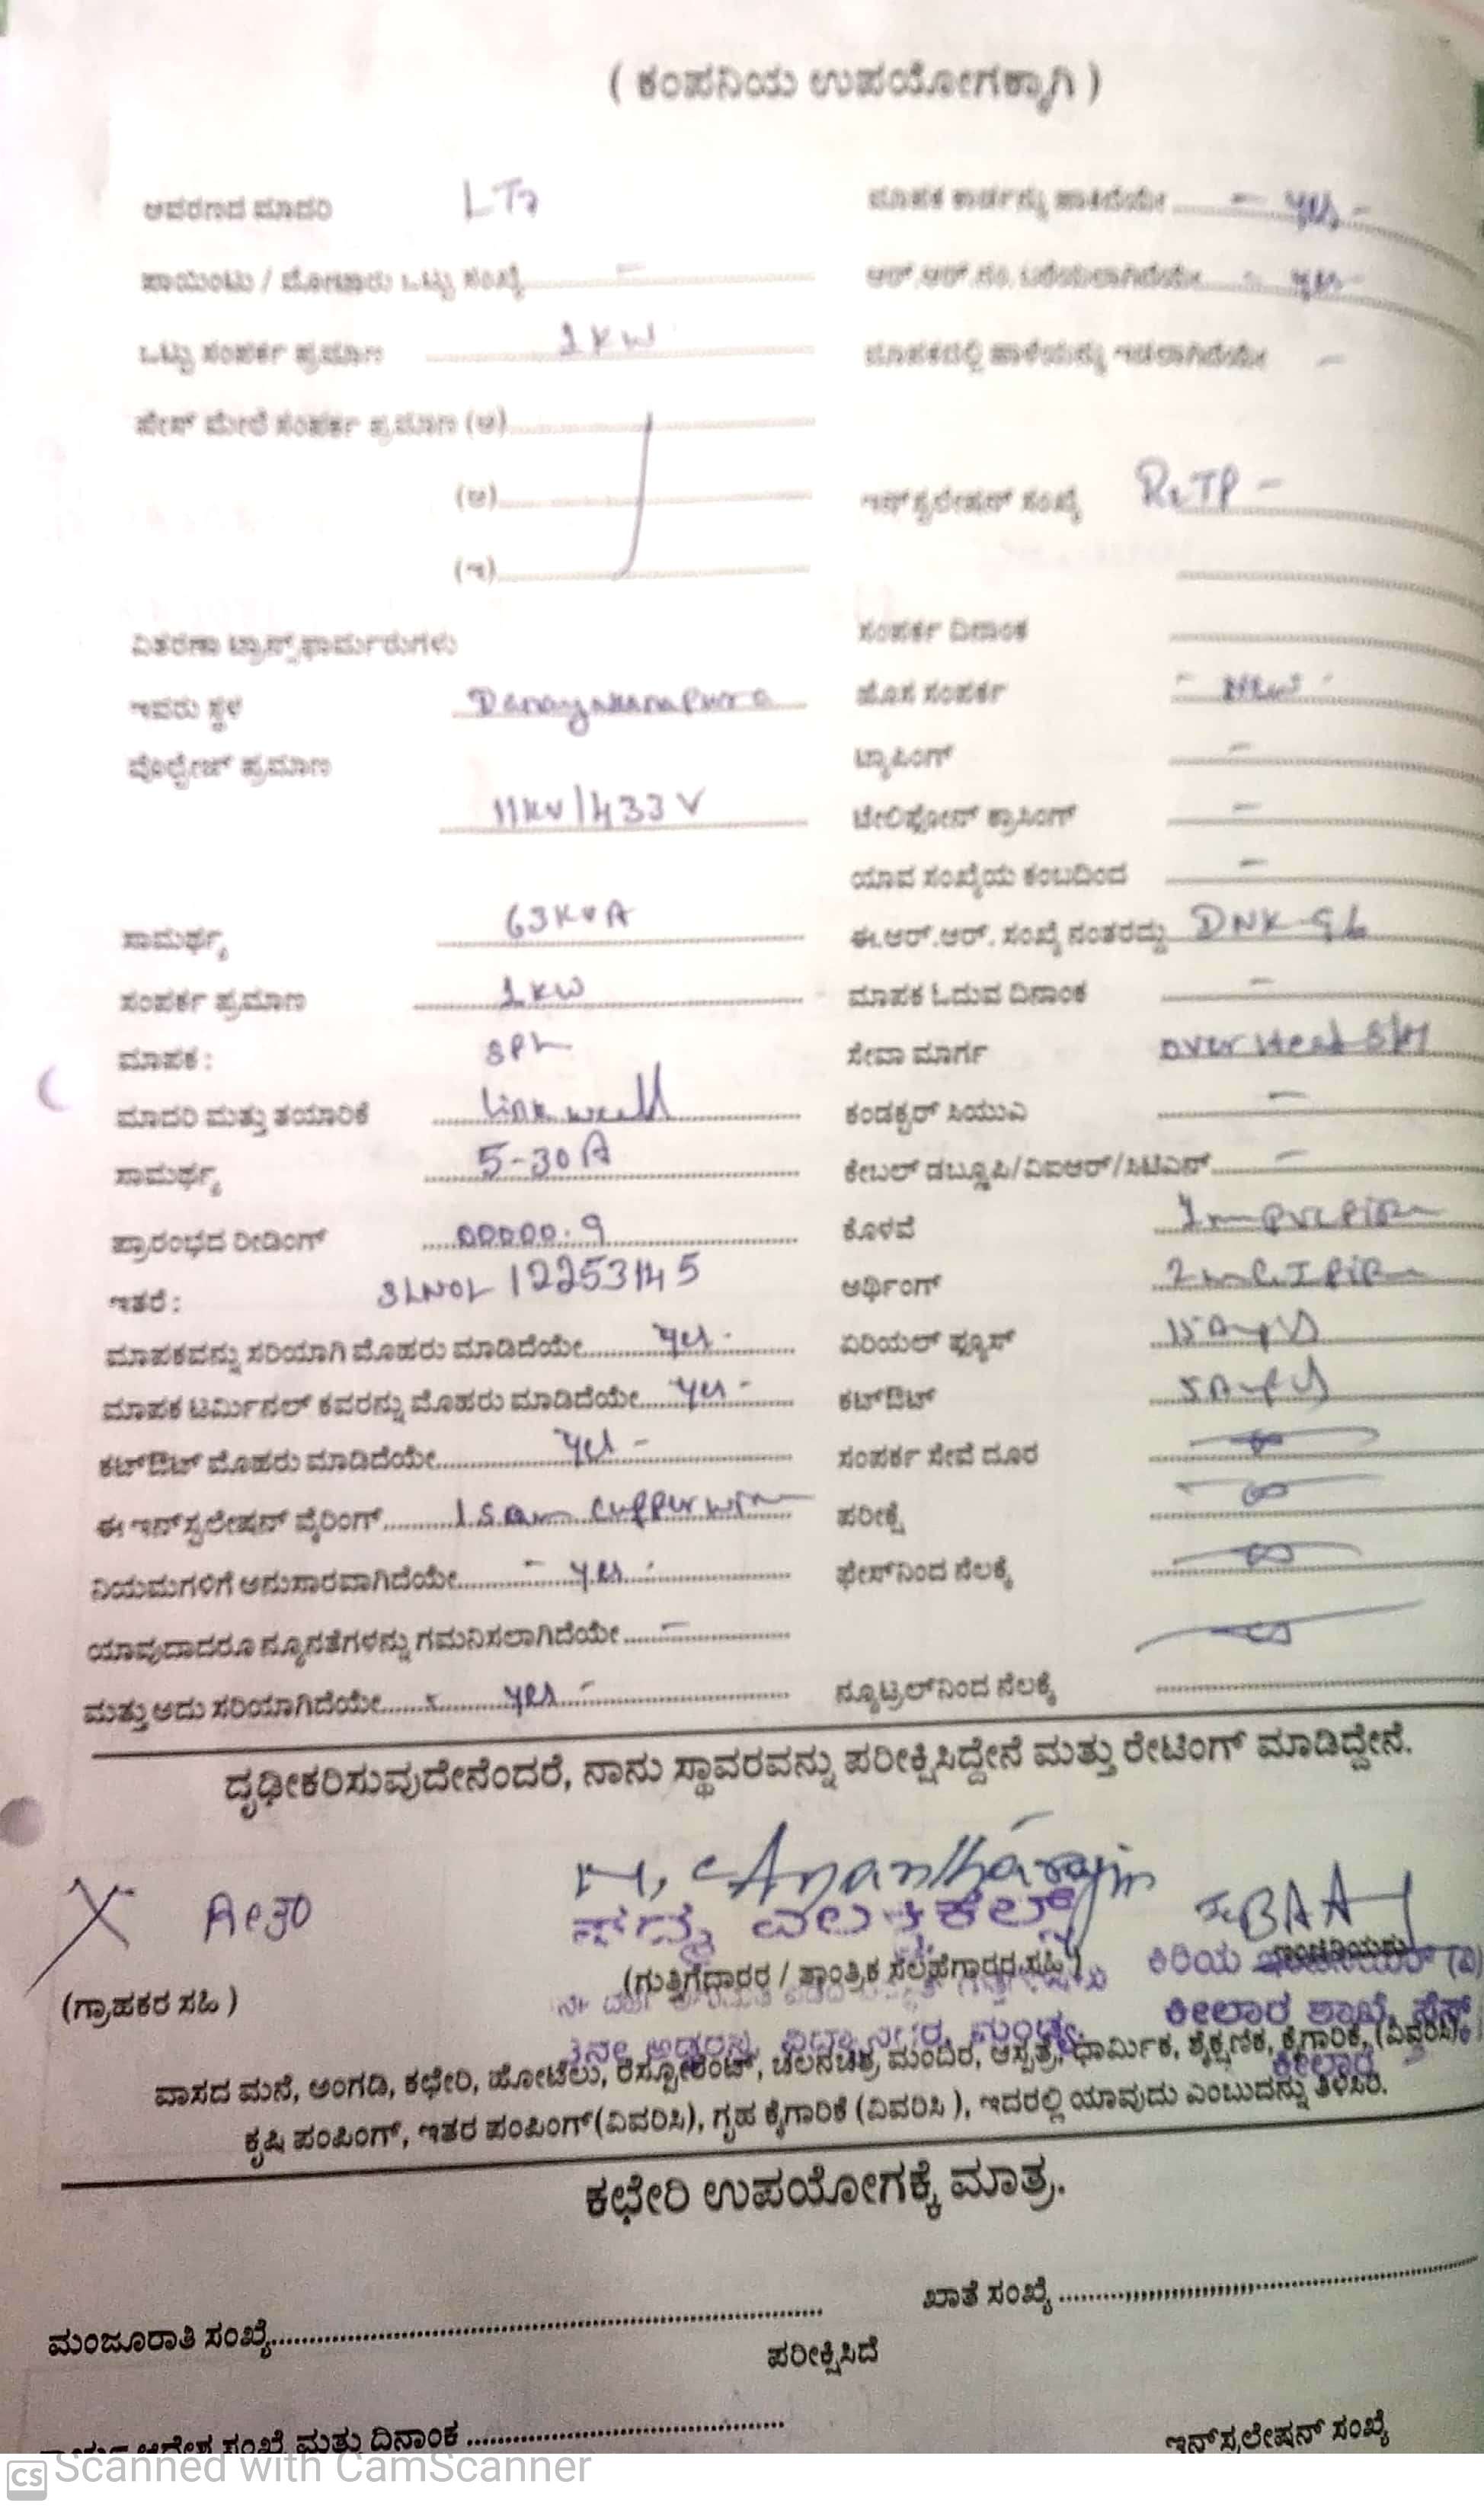 ( ಕಂಪನಿಯ ಉಪಯೋಗಕ್ಕಾಗಿ )
ಆವರಣದ ಮಾದರಿ LT7
ಮಾಪಕ ಕಾರ್ಡನ್ನು ಹಾಕಿದೆಯೇ - yes -
ಪಾಯಿಂಟು / ಮೋಟಾರು ಒಟ್ಟು ಸಂಖ್ಯೆ -
ಆರ್.ಆರ್.ನಂ. ಬರೆಯಲಾಗಿದೆಯೇ - yes -
ಒಟ್ಟು ಸಂಪರ್ಕ ಪ್ರಮಾಣ 1 KW
ಮಾಪಕದಲ್ಲಿ ಹಾಳೆಯನ್ನು ಇಡಲಾಗಿದೆಯೇ -
ಪೇಸ್ ಮೇಲೆ ಸಂಪರ್ಕ ಪ್ರಮಾಣ (ಅ)
(ಆ)
ಇನ್‌ಸ್ಟಲೇಷನ್ ಸಂಖ್ಯೆ
(ಇ)
ವಿತರಣಾ ಟ್ರಾನ್ಸ್‌ಫಾರ್ಮರುಗಳು
ಸಂಪರ್ಕ ದಿನಾಂಕ
ಇವರು ಸ್ಥಳ Danayakanapura
ಹೊಸ ಸಂಪರ್ಕ - New -
ವೊಲ್ಟೇಜ್ ಪ್ರಮಾಣ
ಟ್ಯಾಪಿಂಗ್ -
11KV/433 V
ಟೇಲಿಫೋನ್ ಕ್ರಾಸಿಂಗ್ -
ಯಾವ ಸಂಖ್ಯೆಯ ಕಂಬದಿಂದ -
ಸಾಮರ್ಥ್ಯ 63 KVA
ಈ.ಆರ್.ಆರ್. ಸಂಖ್ಯೆ ನಂತರದ್ದು DNK 96
ಸಂಪರ್ಕ ಪ್ರಮಾಣ 1 KW
ಮಾಪಕ ಓದುವ ದಿನಾಂಕ -
ಮಾಪಕ :
ಸೇವಾ ಮಾರ್ಗ over Head
ಮಾದರಿ ಮತ್ತು ತಯಾರಿಕೆ Linkwell
ಕಂಡಕ್ಟರ್ ಸಿಯುಎ -
ಸಾಮರ್ಥ್ಯ 5-30 A
ಕೇಬಲ್ ಡಬ್ಲ್ಯೂಪಿ/ವಿಐಆರ್/ಸಿಟಿಎನ್ -
ಪ್ರಾರಂಭದ ರೀಡಿಂಗ್ 00000.9
ಕೊಳವೆ
ಇತರೆ : 12253145
ಅರ್ಥಿಂಗ್
ಮಾಪಕವನ್ನು ಸರಿಯಾಗಿ ಮೊಹರು ಮಾಡಿದೆಯೇ yes -
ಏರಿಯಲ್ ಫ್ಯೂಸ್ 15 Amps
ಮಾಪಕ ಟರ್ಮಿನಲ್ ಕವರನ್ನು ಮೊಹರು ಮಾಡಿದೆಯೇ yes -
ಕಟ್ಔಟ್ 5 Amps
ಕಟ್ಔಟ್ ಮೊಹರು ಮಾಡಿದೆಯೇ yes -
ಸಂಪರ್ಕ ಸೇವೆ ದೂರ
ಈ ಇನ್‌ಸ್ಟಲೇಷನ್ ವೈರಿಂಗ್
ಪರೀಕ್ಷೆ
ನಿಯಮಗಳಿಗೆ ಅನುಸಾರವಾಗಿದೆಯೇ - yes -
ಫೇಸ್‌ನಿಂದ ನೆಲಕ್ಕೆ
ಯಾವುದಾದರೂ ನ್ಯೂನತೆಗಳನ್ನು ಗಮನಿಸಲಾಗಿದೆಯೇ -
ಮತ್ತು ಅದು ಸರಿಯಾಗಿದೆಯೇ - yes -
ನ್ಯೂಟ್ರಲ್‌ನಿಂದ ನೆಲಕ್ಕೆ
ದೃಢೀಕರಿಸುವುದೇನೆಂದರೆ, ನಾನು ಸ್ಥಾವರವನ್ನು ಪರೀಕ್ಷಿಸಿದ್ದೇನೆ ಮತ್ತು ರೇಟಿಂಗ್ ಮಾಡಿದ್ದೇನೆ.
(ಗುತ್ತಿಗೆದಾರರ / ತಾಂತ್ರಿಕ ಸಲಹೆಗಾರರ ಸಹಿ)
ಕಿರಿಯ
(ಗ್ರಾಹಕರ ಸಹಿ )
ಕೀಲಾರ ಶಾಖೆ
ಕೀಲಾರ
ವಾಸದ ಮನೆ, ಅಂಗಡಿ, ಕಛೇರಿ, ಹೋಟೆಲು, ರೆಸ್ಟೋರೆಂಟ್, ಚಲನಚಿತ್ರ ಮಂದಿರ, ಆಸ್ಪತ್ರೆ, ಧಾರ್ಮಿಕ, ಶೈಕ್ಷಣಿಕ, ಕೈಗಾರಿಕೆ, (ವಿವರಿಸಿ),
ಕೃಷಿ ಪಂಪಿಂಗ್, ಇತರ ಪಂಪಿಂಗ್(ವಿವರಿಸಿ), ಗೃಹ ಕೈಗಾರಿಕೆ (ವಿವರಿಸಿ ), ಇದರಲ್ಲಿ ಯಾವುದು ಎಂಬುದನ್ನು ತಿಳಿಸಿರಿ.
ಕಛೇರಿ ಉಪಯೋಗಕ್ಕೆ ಮಾತ್ರ.
ಖಾತೆ ಸಂಖ್ಯೆ
ಮಂಜೂರಾತಿ ಸಂಖ್ಯೆ
ಪರೀಕ್ಷಿಸಿದೆ
ಸಂಖ್ಯೆ ಮತ್ತು ದಿನಾಂಕ
ಇನ್‌ಸ್ಟಲೇಷನ್ ಸಂಖ್ಯೆ
CS Scanned with CamScanner